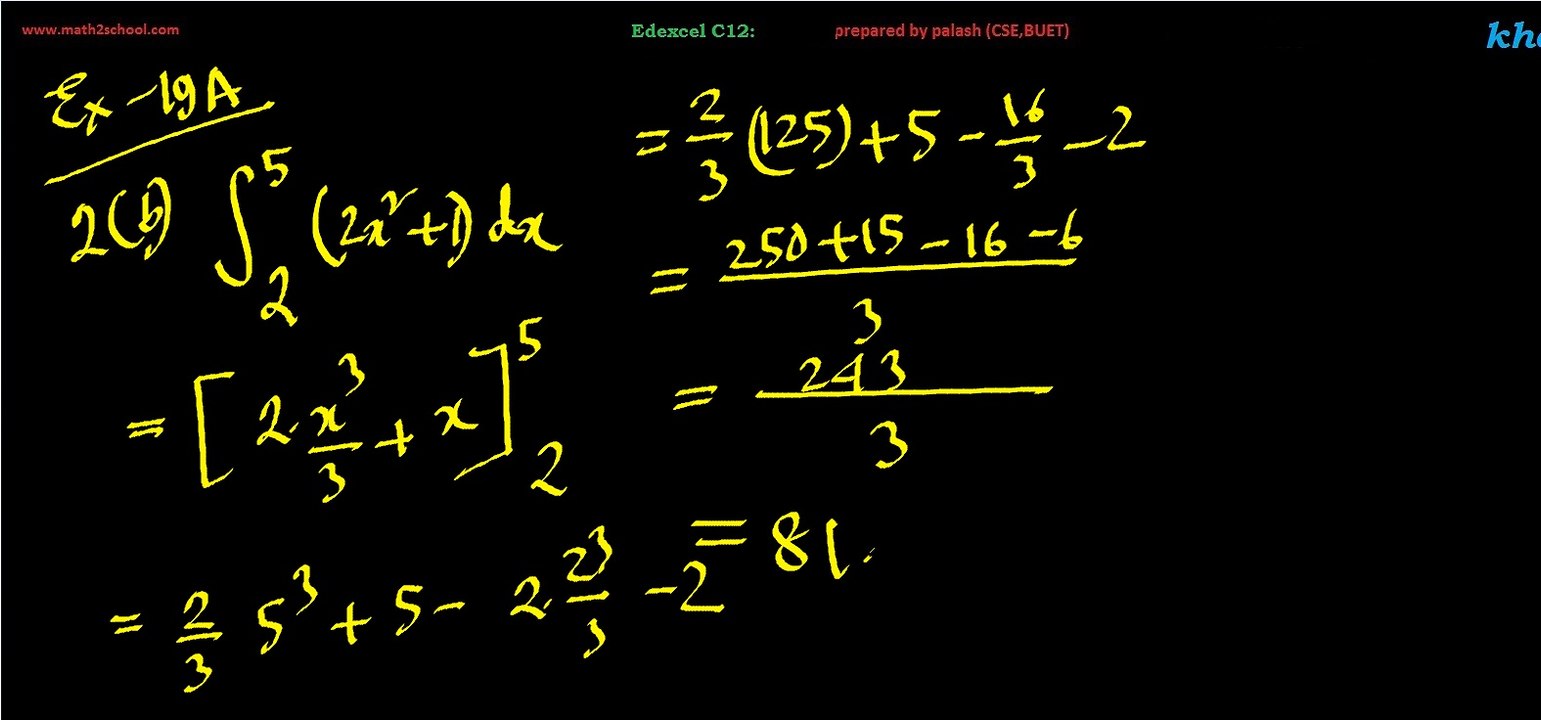 www.math2school.com
Edexcel C12:
prepared by palash (CSE,BUET)
Ex - 19A
2(b) ∫₂⁵ (2x²+1) dx
= [2·x³/3 + x]₂⁵
= 2/3 5³ + 5 - 2·2³/3 - 2
= 2/3 (125) + 5 - 16/3 - 2
= 250+15-16-6 / 3
= 243 / 3
= 81.